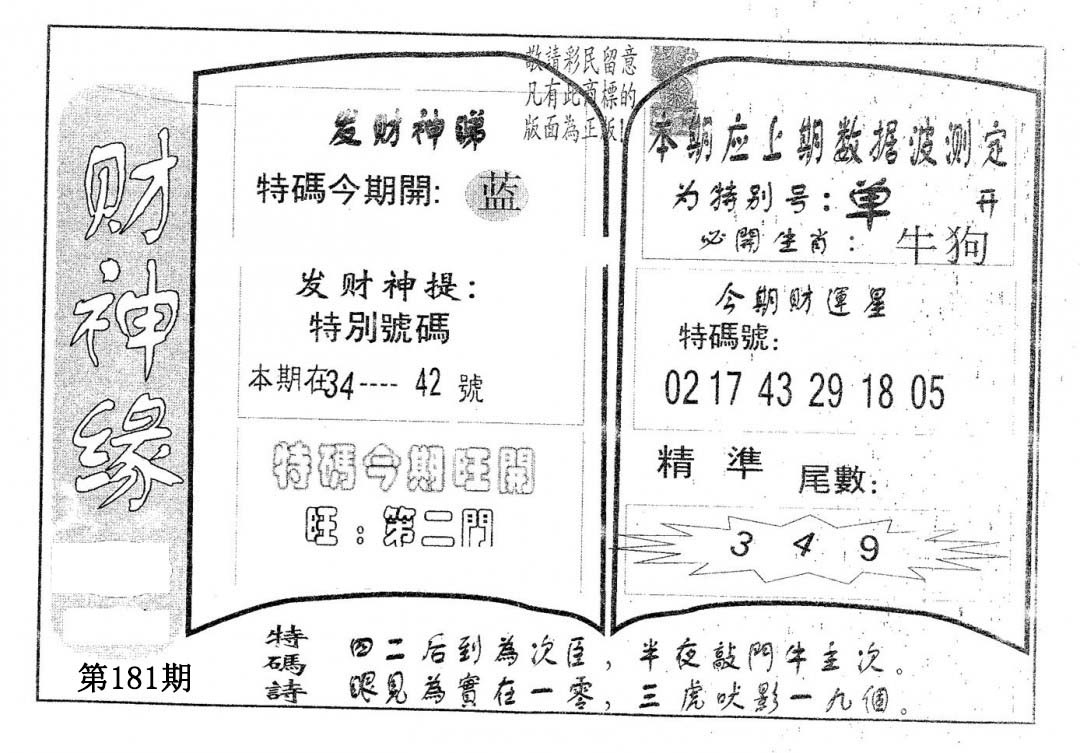 财神缘
第181期
敬請彩民留意
凡有此商標的
版面為正版!
发财神睇
特碼今期開:蓝
发财神提:
特別號碼
本期在34----42號
特碼今期旺開
旺:第二門
本期应上期数据波测定
为特别号:单 开
必開生肖:牛狗
今期财運星
特碼號:
02 17 43 29 18 05
精準 尾數:
3 4 9
特碼詩
四二后到為次臣，半夜敲門牛主次。
眼見為實在一零，三虎吠影一九個。